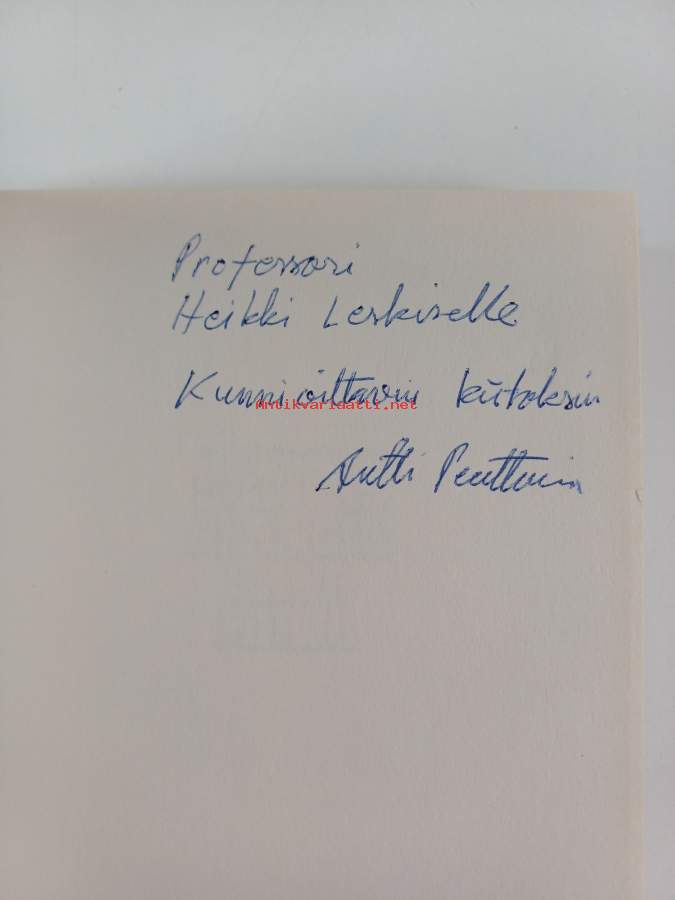 Professori
Heikki Leskiselle
Kunnioittavin kiitoksin
Antikvariaatti.net
Antti Penttinen